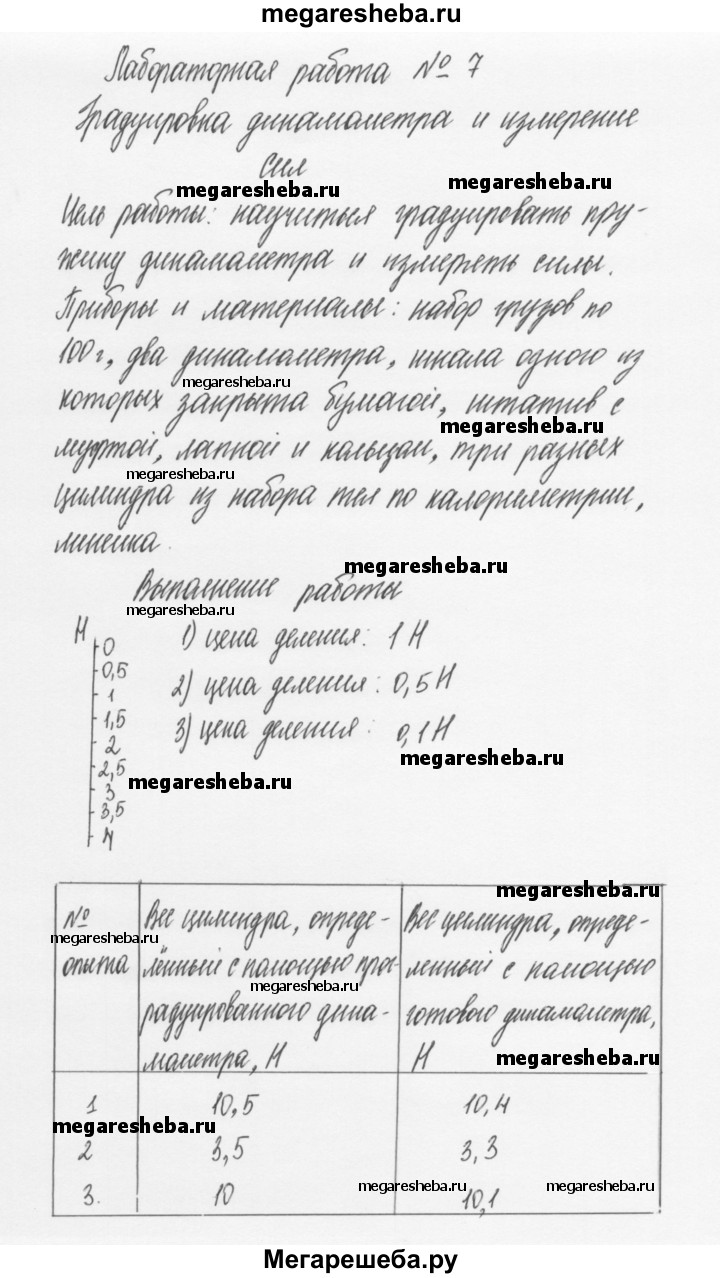 megaresheba.ru
Лабораторная работа № 7
Градуировка динамометра и измерение
сил
megaresheba.ru
megaresheba.ru
Цель работы: научиться градуировать пру-
жину динамометра и измерять силы.
Приборы и материалы: набор грузов по
100 г, два динамометра, шкала одного из
megaresheba.ru
которых закрыта бумагой, штатив с
megaresheba.ru
муфтой, лапкой и кольцом, три разных
megaresheba.ru
цилиндра из набора тел по калориметрии,
линейка.
megaresheba.ru
Выполнение работы
megaresheba.ru
Н
0
0,5
1
1,5
2
2,5
3
3,5
4
1) цена деления: 1 Н
2) цена деления: 0,5 Н
3) цена деления: 0,1 Н
megaresheba.ru
megaresheba.ru
megaresheba.ru
№
megaresheba.ru
опыта
Вес цилиндра, опреде-
лённый с помощью про-
megaresheba.ru
радуированного дина-
мометра, Н
Вес цилиндра, опреде-
ленный с помощью
готового динамометра,
Н
megaresheba.ru
1 10,5 10,4
megaresheba.ru
2 3,5 3,3
megaresheba.ru
megaresheba.ru
3. 10 10,1
Мегарешеба.ру